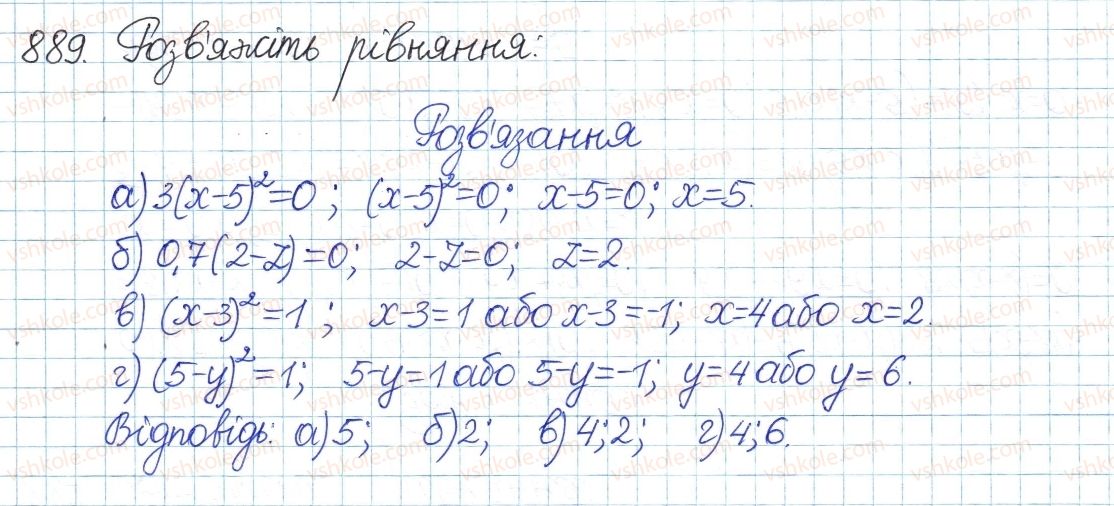 889. Розв'яжіть рівняння:
Розв'язання
а) 3(x-5)²=0; (x-5)²=0; x-5=0; x=5.
б) 0,7(2-z)=0; 2-z=0; z=2.
в) (x-3)²=1; x-3=1 або x-3=-1; x=4 або x=2.
г) (5-y)²=1; 5-y=1 або 5-y=-1; y=4 або y=6.
Відповідь: а) 5; б) 2; в) 4; 2; г) 4; 6.